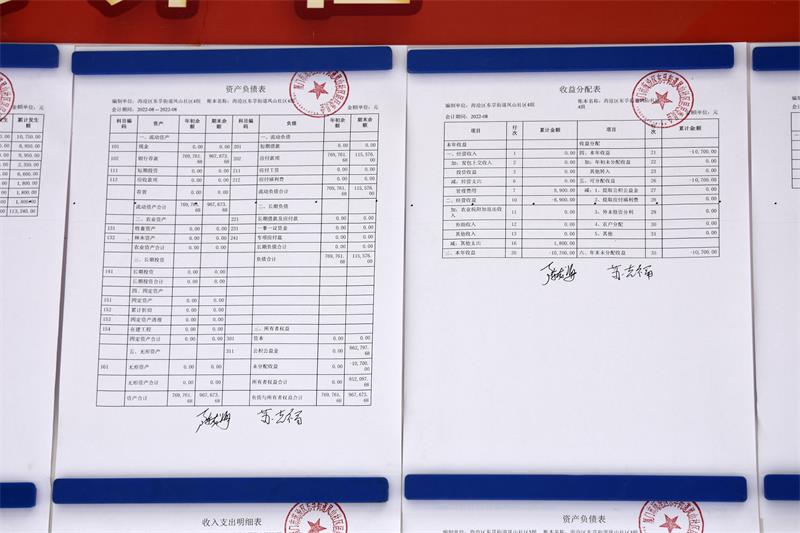 金额单位：元
累计发生
额
10,750.00
8,950.00
1,800.00
1,800.00
资产负债表
编制单位：海沧区东孚街道凤山社区4组 账本名称：海沧区东孚街道凤山社区4组 金额单位：元
会计期间：2022-08--2022-08
科目编码 资产 年初余额 期末余额 科目编码 负债 年初余额 期末余额
一、流动资产 一、流动负债
101 现金 0.00 0.00 201 短期借款 0.00 0.00
102 银行存款 769,761.68 967,673.68 202 应付款项 769,761.68 115,576.00
111 短期投资 0.00 0.00 211 应付工资 0.00 0.00
112 应收款项 0.00 0.00 212 应付福利费 0.00 0.00
存货 0.00 0.00 流动负债合计 769,761.68 115,576.00
流动资产合计 769,761.68 967,673.68 二、长期负债
二、农业资产 221 长期借款及应付款 0.00 0.00
131 牲畜资产 0.00 0.00 231 一事一议资金 0.00 0.00
132 林木资产 0.00 0.00 241 专项应付款 0.00 0.00
农业资产合计 0.00 0.00 长期负债合计 0.00 0.00
三、长期投资 负债合计 769,761.68 115,576.00
141 长期投资 0.00 0.00
长期投资合计 0.00 0.00
四、固定资产
151 固定资产 0.00 0.00
152 累计折旧 0.00 0.00
153 固定资产清理 0.00 0.00
154 在建工程 0.00 0.00 三、所有者权益
固定资产合计 0.00 0.00 301 资本 0.00 0.00
五、无形资产 311 公积公益金 0.00 862,797.68
161 无形资产 0.00 0.00 未分配收益 0.00 -10,700.00
无形资产合计 0.00 0.00 所有者权益合计 0.00 852,097.68
资产合计 769,761.68 967,673.68 负债与所有者权益合计 769,761.68 967,673.68
苏志福
收益分配表
编制单位：海沧区东孚街道凤山社区4组 账本名称：海沧区东孚街道凤山社区4组 金额单位：元
会计期间：2022-08
项目 行次 累计金额 项目 行次 累计金额
本年收益 收益分配
一、经营收入 1 0.00 四、本年收益 21 -10,700.00
加：发包上交收入 2 0.00 加：年初未分配收益 22 0.00
投资收益 3 0.00 其他转入 23 0.00
减：经营支出 6 0.00 五、可分配收益 26 -10,700.00
管理费用 7 8,900.00 减：1、提取公积公益金 27 0.00
二、经营收益 10 -8,900.00 2、提取应付福利费 28 0.00
加：农业税附加返还收入 11 0.00 3、外来投资分利 29 0.00
补助收入 12 0.00 4、农户分配 30 0.00
其他收入 13 0.00 5、其他 31 0.00
减：其他支出 16 1,800.00
三、本年收益 20 -10,700.00 六、年末未分配收益 35 -10,700.00
苏志福
收入支出明细表
资产负债表